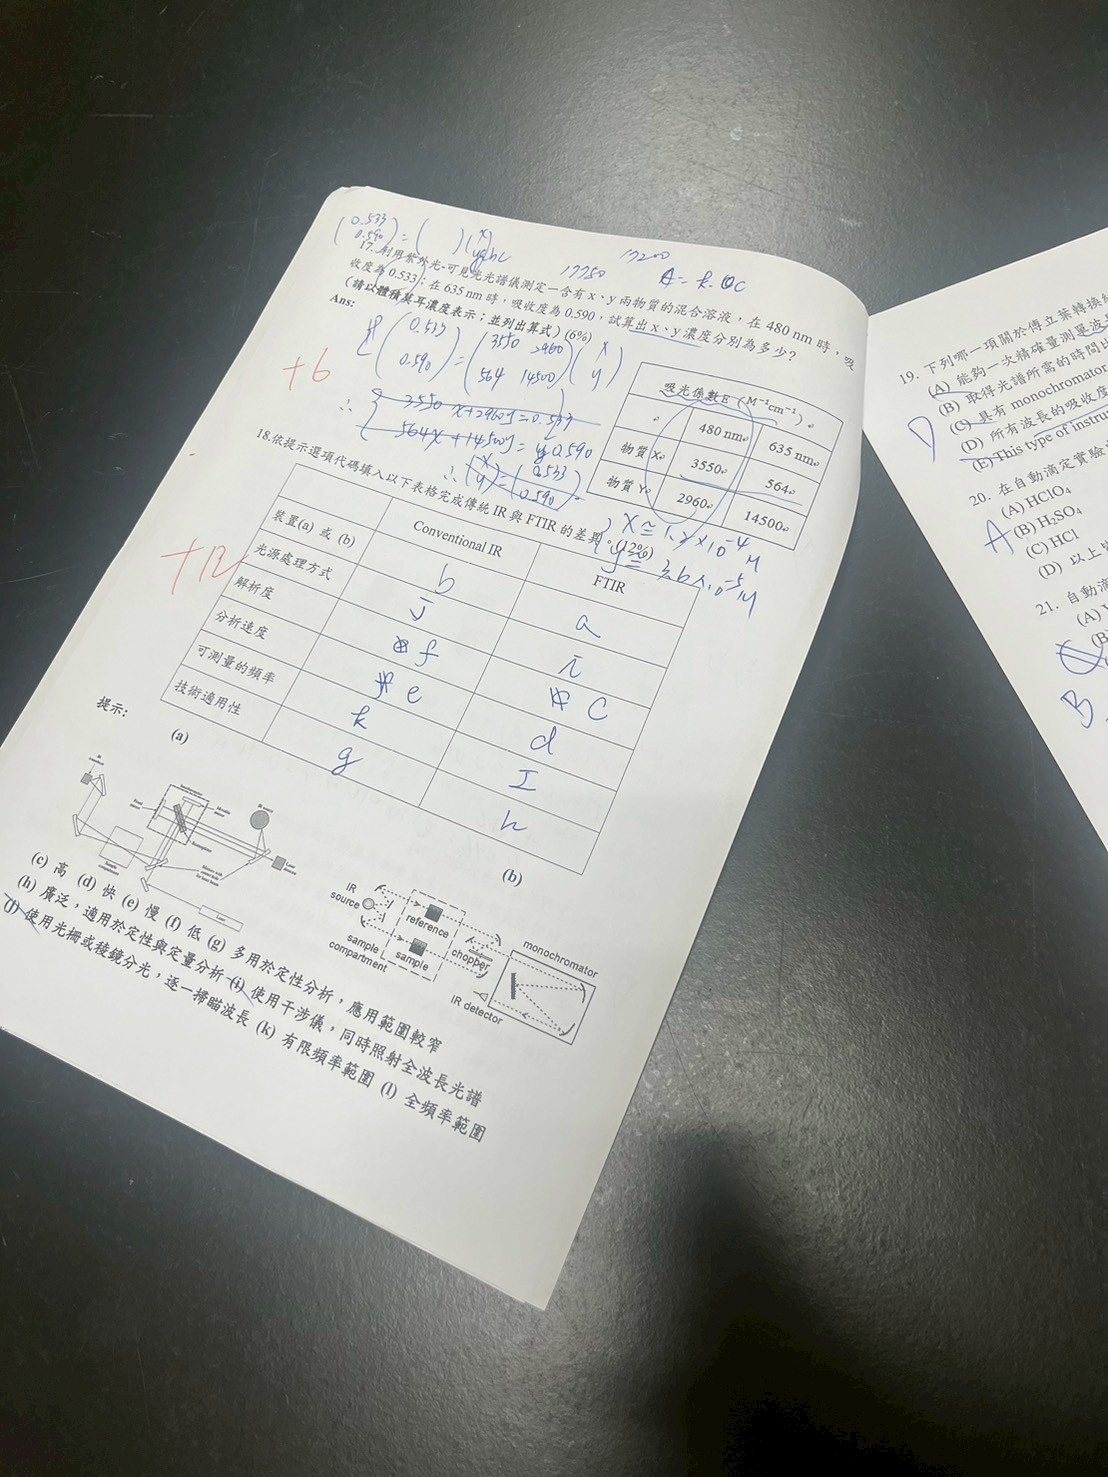 (0.533
0.590) = ( )(x
y)
17250
17200
A = k·bc
17. 利用紫外光-可見光光譜儀測定一含有 x、y 兩物質的混合溶液，在 480 nm 時，吸
收度為 0.533；在 635 nm 時，吸收度為 0.590，試算出 x、y 濃度分別為多少？
（請以體積莫耳濃度表示；並列出算式）(6%)
Ans:
(0.533
0.590) = (3550 2960
564 14500)(x
y)
+6
∴ { 3550x+2960y=0.533
564x+14500y=0.590
∴ (x
y) = (0.533
0.590)
吸光係數 E（M⁻¹cm⁻¹）
480 nm 635 nm
物質 X 3550 564
物質 Y 2960 14500
y ≅ 3.6×10⁻⁵M
18.依提示選項代碼填入以下表格完成傳統 IR 與 FTIR 的差異。(12%)
+12
Conventional IR FTIR
裝置(a) 或 (b) b a
光源處理方式 j i
解析度 f C
分析速度 e d
可測量的頻率 k I
技術適用性 g h
提示:
(a)
(b)
IR
source
reference
sample
sample
compartment
chopper
monochromator
IR detector
Laser
(c) 高 (d) 快 (e) 慢 (f) 低 (g) 多用於定性分析，應用範圍較窄
(h) 廣泛，適用於定性與定量分析 (i) 使用干涉儀，同時照射全波長光譜
(j) 使用光柵或稜鏡分光，逐一掃瞄波長 (k) 有限頻率範圍 (l) 全頻率範圍
19. 下列哪一項關於傅立葉轉換
(A) 能夠一次精確量測單波
(B) 取得光譜所需的時間比
(C) 具有 monochromator
(D) 所有波長的吸收度
(E) This type of instru
D
20. 在自動滴定實驗
(A) HClO₄
(B) H₂SO₄
(C) HCl
(D) 以上皆
A
21. 自動滴
(A)
(B
B